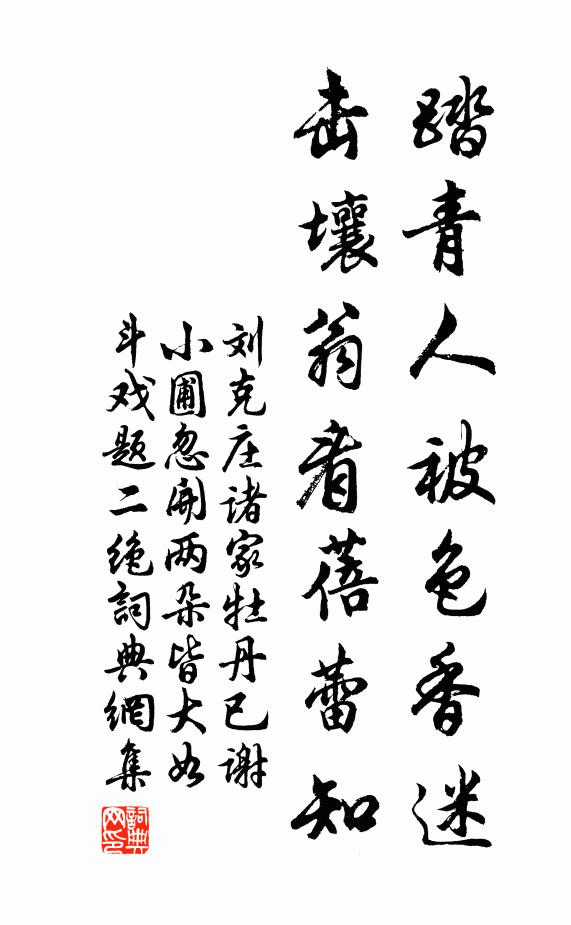 踏青人被色香迷
击壤翁看蓓蕾知
刘克庄诸家牡丹已谢
小圃忽开两朵皆大如
斗戏题二绝词典網集
詞典
网印